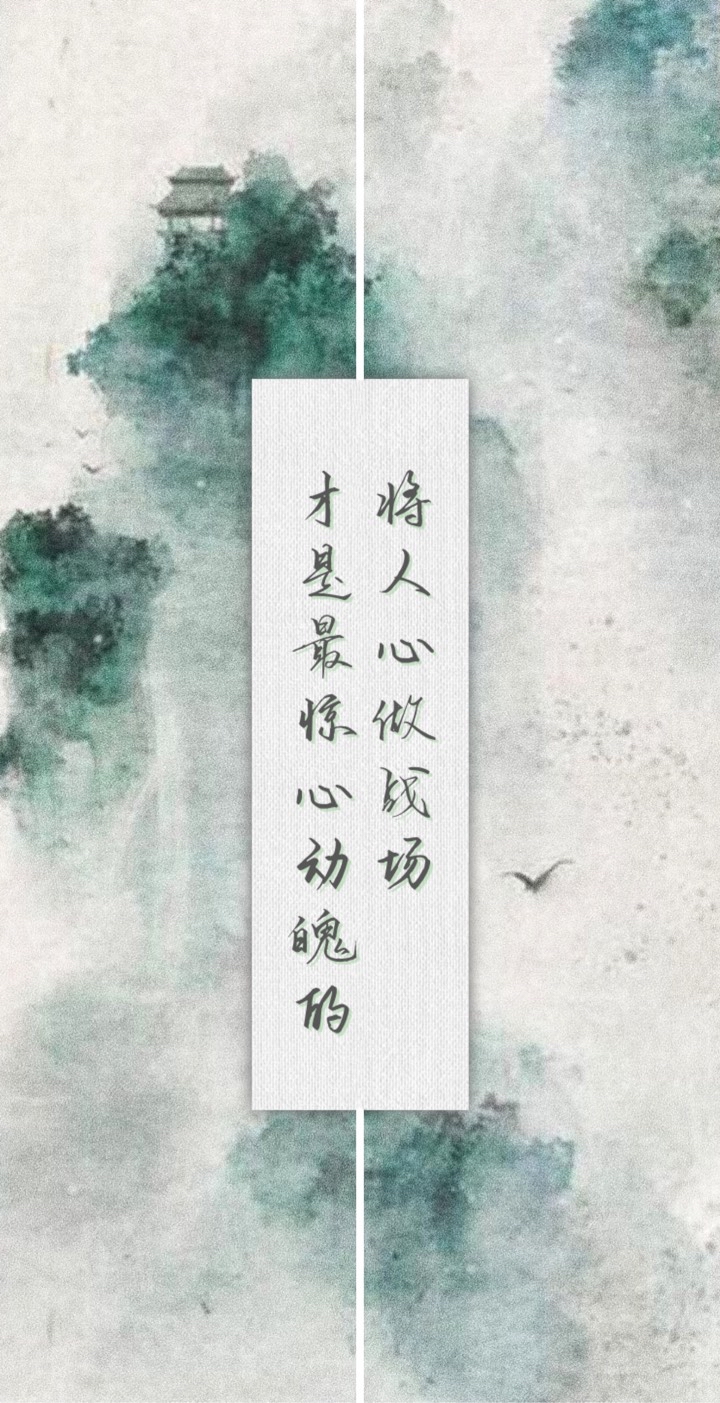 将人心做战场
才是最惊心动魄的